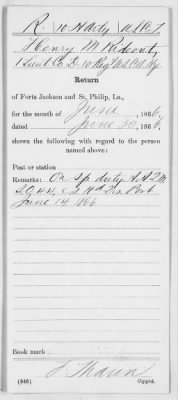 R. 10 H Arty U.S.C.T.
Henry M. Rideout,
1 Lieut Co D. 10 Reg U.S. Col. Hy
Return
of Forts Jackson and St. Philip, La.,
for the month of June, 1866.
dated June 30, 1866.
shows the following with regard to the person
named above:
Post or station
Remarks: On sp. duty A.A.Q.M.
S.O. 44, Hd Qrs Post
June 14, 1866
Book mark:
(546)
Copyist.